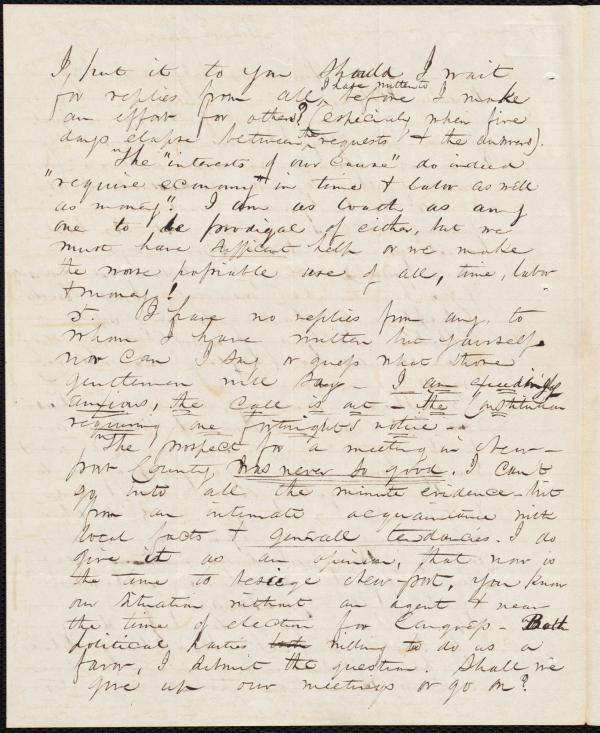 I, put it to you should I wait
for replies from all, I have written to before I make
an effort for others? (especially when five
days elapse between the requests & the answers).
"The "interests of our cause" do indeed
"require economy" in time & labor as well
as money". I am as loath as any
one to be prodigal of either, but we
must have sufficient help or we make
the worse profitable use of all, time, labor
& money!
5. I have no replies from any, to
whom I have written but yourself
nor can I say or guess what those
gentlemen will say - I am exceedingly
anxious, the call is out - the Constitution
requiring one fortnight's notice -
"The prospect for a meeting in New-
port County, was never so good. I can't
go into all the minute evidence - but
from an intimate acquaintance with
local facts & generall tendancies. I do
give it as an opinion, that now is
the time to besiege New-port, you know
our situation without an agent & near
the time of election for Congress - Both
political parties both willing to do us a
favor, I submit the question. Shall we
give up our meetings or go on?